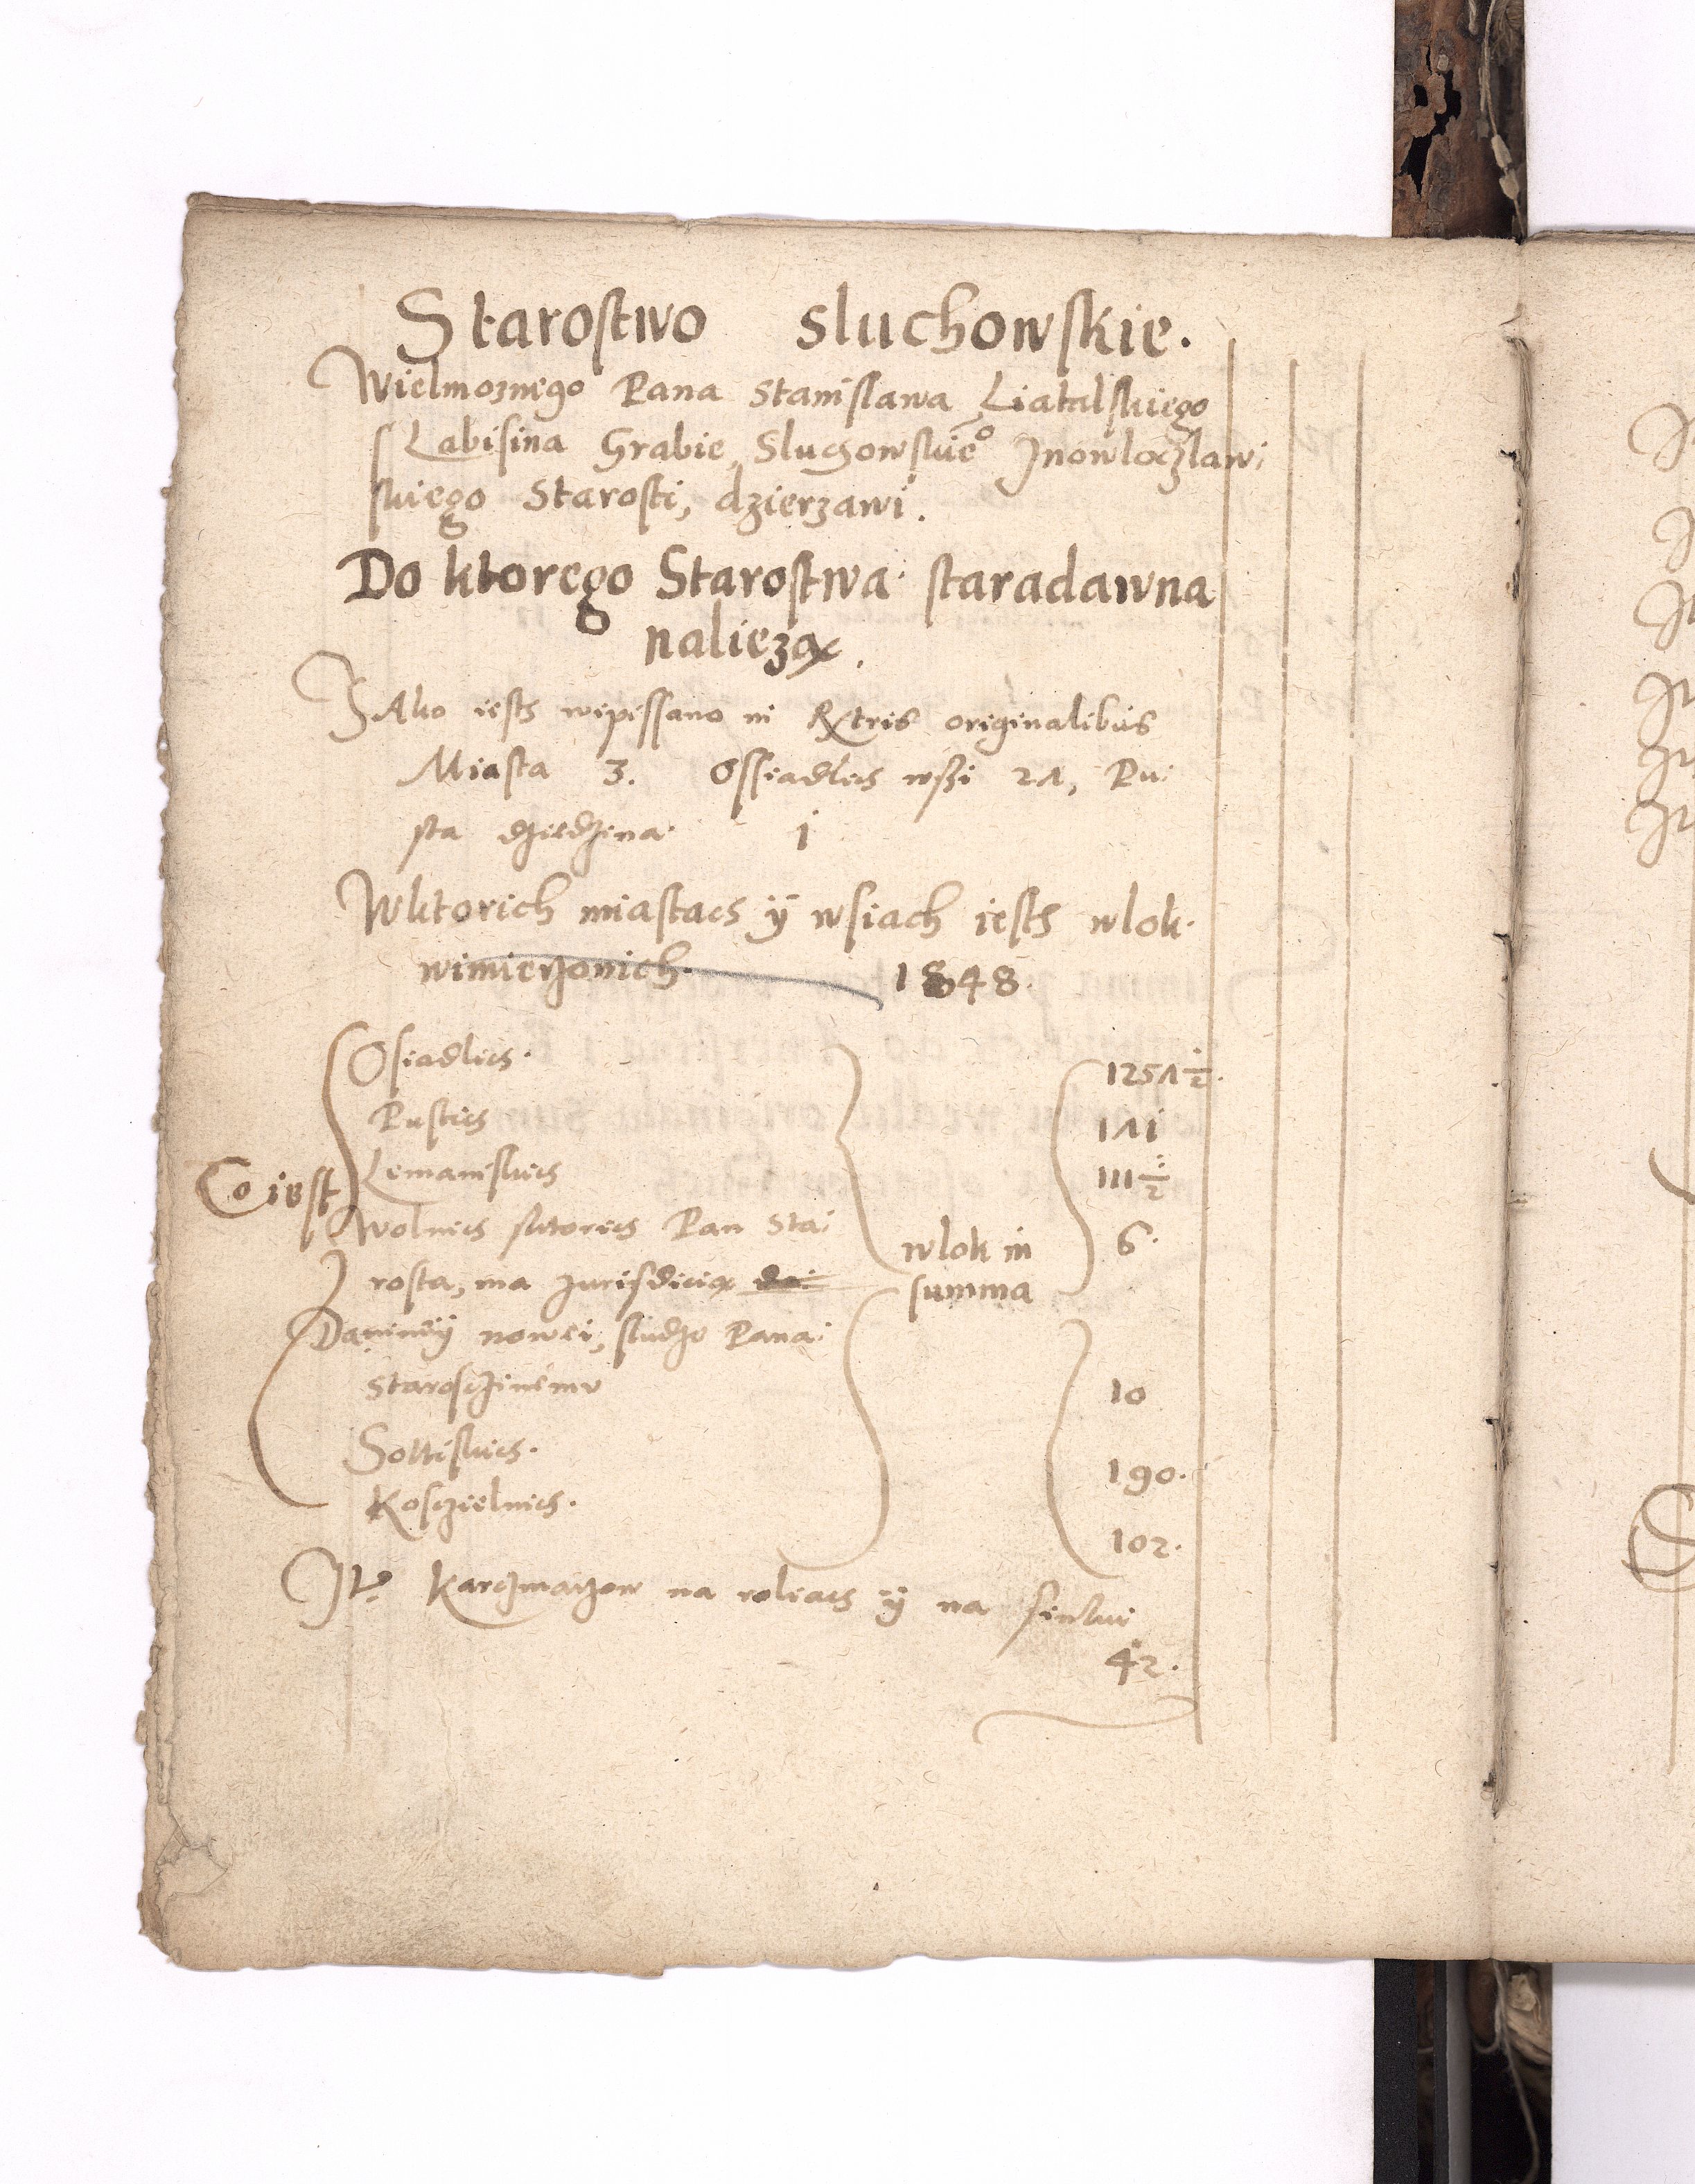 Starostwo sluchowskie.
Wielmoznego Pana Stanislawa Liatalskiego
s Labisina Grabie, Sluchowskie° Jnowloczlaw:
skiego Starosti, dzierzawi.
Do ktorego Starostwa staradawna
naliezą.
JAko iesth wipissano in Rxtris originalibus
Miasta 3. Ossiadlich wsi 27, Pu:
sta dziedzina i
Wktorich miastach ÿ wsiach iesth wlok
wimierzonich. 1848.
Osiadlich. 1257 1/2.
Pustich 171
Co iest Lemanskich 111 1/2
Wolnich ktorich Pan Sta: 6.
rosta, ma Jurisdicią
wlok in summa
Daninÿ nowei, sludze Pana
Starosczinemu 10
Soltiskich. 190.
Kosczielnich. 102.
Jt. Karczmarzow na roliach ÿ na
42.